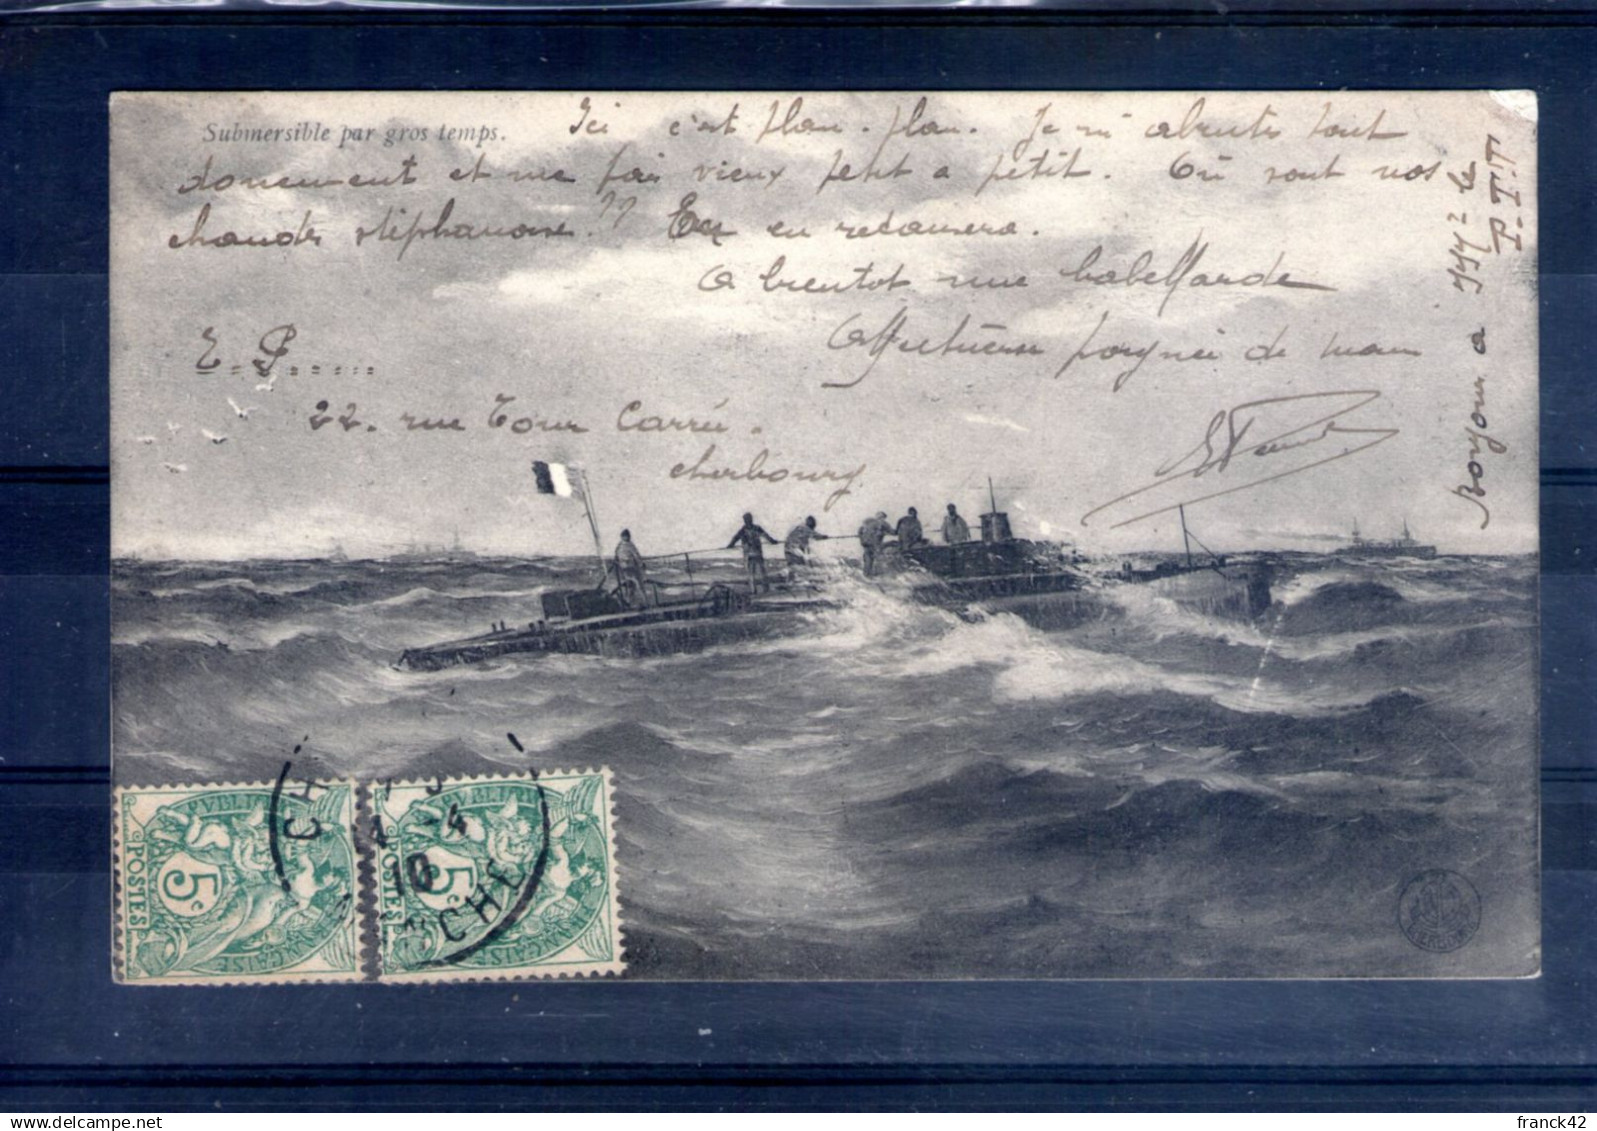 Submersible par gros temps.
Ici c'est plan-plan. Je m'abrutis tout
doucement et me fais vieux petit a petit. Où sont nos
chaudes stéphanoise?? En en recausera.
A bientot une babellarde
Affectueuse poignée de main
E. P......
22. rue Tour Carrée.
cherbourg
Bonjour a
P.T.T
RÉPUBLIQUE FRANÇAISE
5c
POSTES
RÉPUBLIQUE FRANÇAISE
5c
POSTES
4 -4
10
franck42
delcampe.net